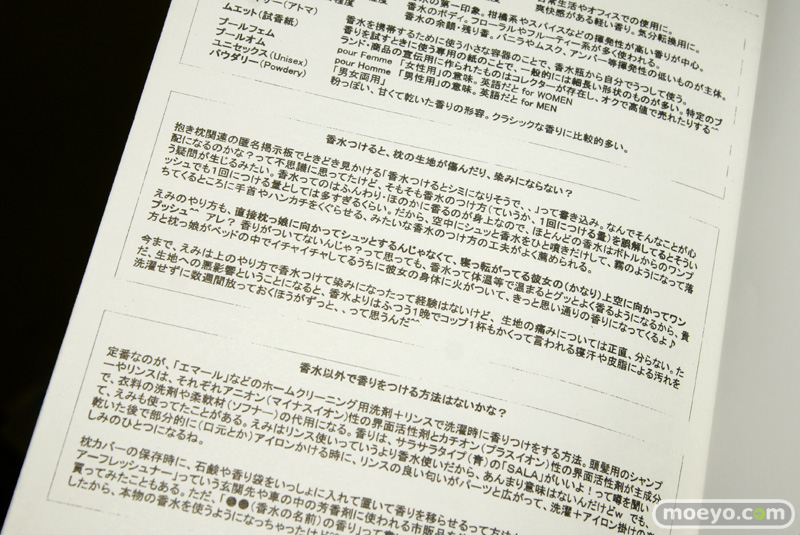 日常生活やオフィスでの使用に。
爽快感がある軽い香り。気分転換用に。
の第一印象。柑橘系やスパイスなどの揮発性が高い香りが中心。
香水のボディ。フローラルやフルーティー系が多く使われる。
香水の余韻・残り香。バニラやムスク、アンバー等揮発性の低いものが主体。
(アトマ)
香水を携帯するために使う小さな容器のことで、香水瓶から自分でうつして使う。
ムエット(試香紙)
香りを試すときに使う専用の紙のことで、一般的には細長い形状のものが多い。特定のブ
ランド・商品の宣伝用に作られたものはコレクターが存在し、オクで高値で売れたりする^^
プールフェム
pour Femme 「女性用」の意味。英語だと for WOMEN
プールオム
pour Homme 「男性用」の意味。英語だと for MEN
ユニセックス(Unisex)
「男女両用」
パウダリー(Powdery)
粉っぽい、甘くて乾いた香りの形容。クラシックな香りに比較的多い。
香水つけると、枕の生地が傷んだり、染みにならない?
抱き枕関連の匿名掲示板でときどき見かける「香水つけるとシミになりそうで、、」って書き込み。なんでそんなことが心
配になるのかな?って不思議に思ってたけど、そもそも香水のつけ方(ていうか、1回につける量)を誤解してるとそうい
う疑問が生じるみたい。香水ってのはふんわり・ほのかに香るのが身上なので、ほとんどの香水はボトルからのワンプ
ッシュでも1回につける量としては多すぎるくらい。だから、空中にシュッと香水をひと噴きだけして、霧のようになって落
ちてくるところに手首やハンカチをくぐらせる、みたいな香水のつけ方の工夫がよく薦められる。
えみのやり方も、直接枕っ娘に向かってシュッとするんじゃなくて、寝っ転がってる彼女の(かなり)上空に向かってワン
プッシュ~ アレ? 香りがついてないんじゃ?って思っても、香水って体温等で温まるとグッとよく香るようになるから、貴
方と枕っ娘がベッドの中でイチャイチャしてるうちに彼女の身体に火がついて、きっと思い通りの香りになってくるよ♪
今まで、えみは上のやり方で香水つけて染みになったって経験はないけど、生地の痛みについては正直、分らない。た
だ、生地への悪影響ということになると、香水よりはふつう1晩でコップ1杯もかくって言われる寝汗や皮脂による汚れを
洗濯せずに数週間放っておくほうがずっと、、って思うんだ^^
香水以外で香りをつける方法はないかな?
定番なのが、「エマール」などのホームクリーニング用洗剤+リンスで洗濯時に香りつけをする方法。頭髪用のシャンプ
ーやリンスは、それぞれアニオン(マイナスイオン)性の界面活性剤とカチオン(プラスイオン)性の界面活性剤が主成分
で、衣料の洗剤や柔軟材(ソフナー)の代用になる。香りは、サラサラタイプ(青)の「SALA」がいいよ!って噂を聞い
て、えみも使ってたことがある。えみはリンス使いっていうより香水使いだから、あんまり意味はないんだけどw でも、
乾いた後で部分的に(口元とか)アイロンかける時に、リンスの良い匂いがパーッと広がって、洗濯+アイロン掛けの
しみのひとつになるね。
枕カバーの保存時に、石鹸や香り袋をいっしょに入れて置いて香りを移らせるって方法
アーフレッシュナー」っていう玄関先や車の中の芳香剤に使われる市販品
買ってみたこともある。ただ、「●●(香水の名前)の香り」って書
したから、本物の香水を使うようになっちゃったけど
moeyo.com